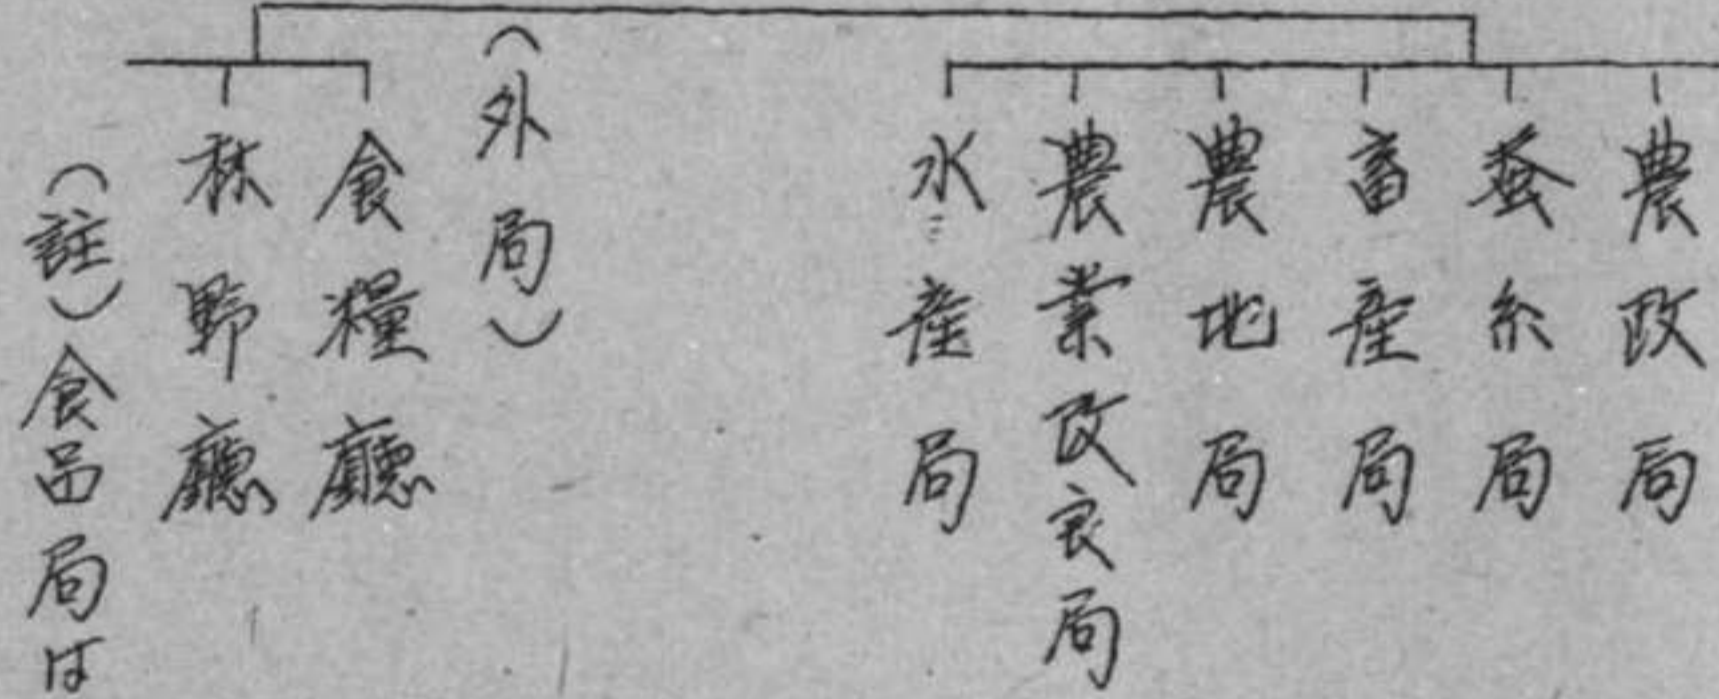 農政局
蚕糸局
畜産局
農地局
農業改良局
水産局
(外局)
食糧廳
林野廳
(註)食品局は